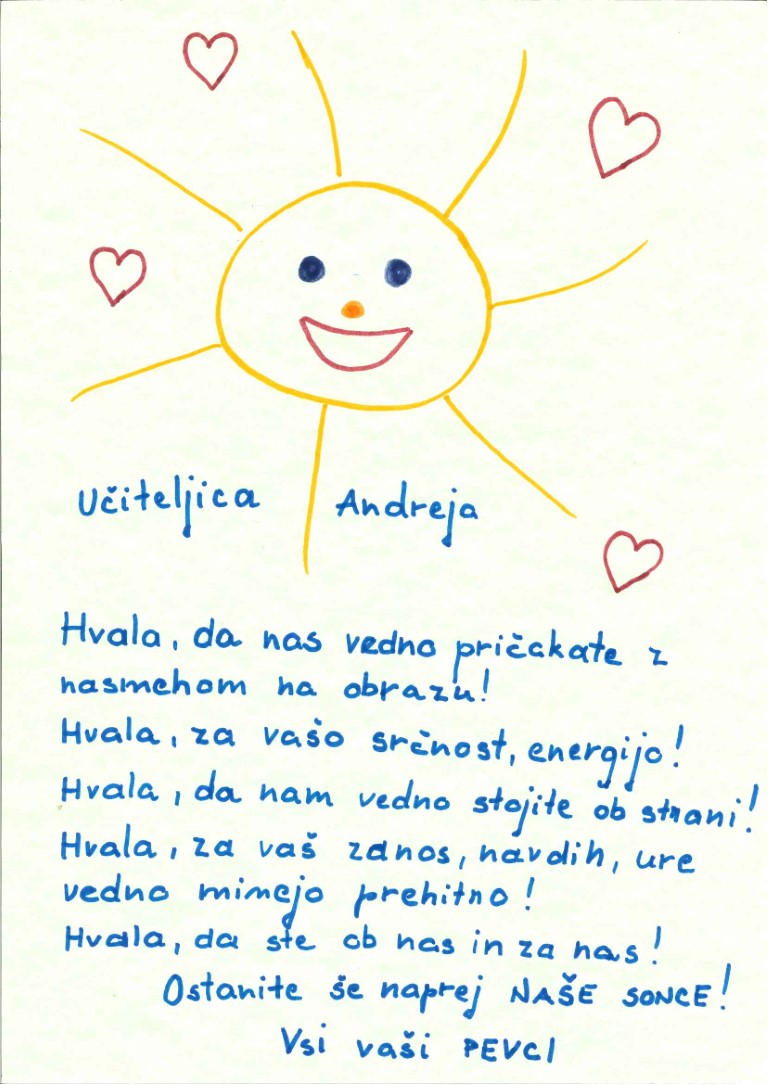 Učiteljica Andreja
Hvala, da nas vedno pričakate z
nasmehom na obrazu!
Hvala, za vašo srčnost, energijo!
Hvala, da nam vedno stojite ob strani!
Hvala, za vaš zanos, navdih, ure
vedno minejo prehitno!
Hvala, da ste ob nas in za nas!
Ostanite še naprej NAŠE SONCE!
Vsi vaši PEVCI